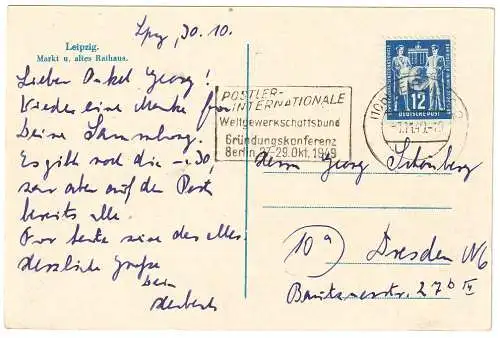 Lpzg, 30.10.
Leipzig.
Markt u. altes Rathaus.
Lieber Onkel Georg!
Wieder eine Marke für
Deine Sammlung.
Es gibt noch die -,30,
aber auf der Post
bereits alle.
Für heute sei das alles.
Herzliche Grüße
Dein
Herbert
POSTLER-
INTERNATIONALE
Weltgewerkschaftsbund
Gründungskonferenz
Berlin, 27.-29.Okt. 1949
12
DEUTSCHE POST
Herrn Georg Schönberg
10a
Dresden N6
Bautznerstr. 27b IV